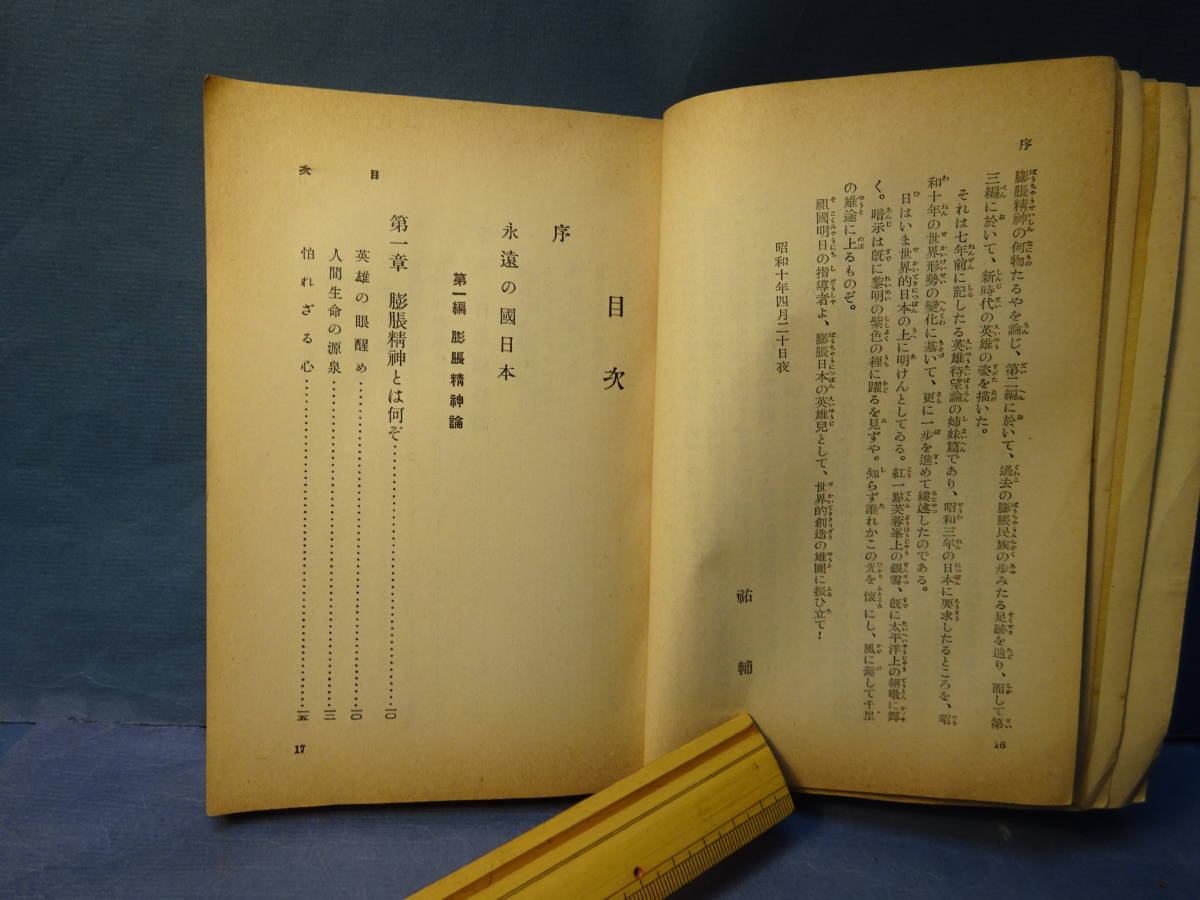 序
膨脹精神の何物たるやを論じ、第二編に於いて、過去の膨脹民族の歩みたる足跡を辿り、而して第
三編に於いて、新時代の英雄の姿を描いた。
それは七年前に記したる英雄待望論の姉妹篇であり、昭和三年の日本に要求したるところを、昭
和十年の世界形勢の變化に基いて、更に一歩を進めて縷述したのである。
日はいま世界的日本の上に明けんとしてゐる。紅一點芙蓉峯上の銀雪、既に太平洋上の朝暾に輝
く。暗示は既に黎明の紫色の裡に躍るを見ずや。知らず誰れかこの光を懷にし、風に駕して千里
の雄途に上るものぞ。
祖國明日の指導者よ、膨脹日本の英雄兒として、世界的創造の雄圖に振ひ立て！
昭和十年四月二十日夜
祐輔
16
目次
序
永遠の國日本
第一編 膨脹精神論
第一章 膨脹精神とは何ぞ……一〇
英雄の眼醒め……一〇
人間生命の源泉……一三
怕れざる心……一五
目次
17